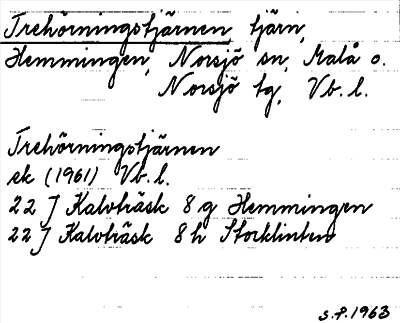 Trehörningstjärnen, tjärn,
Hemmingen, Norsjö sn, Malå o.
Norsjö tg, Vb. l.
Trehörningstjärnen
ek (1961) Vb. l.
22 J Kalvträsk 8 g Hemmingen
22 J Kalvträsk 8 h Storklinten
S.P. 1963